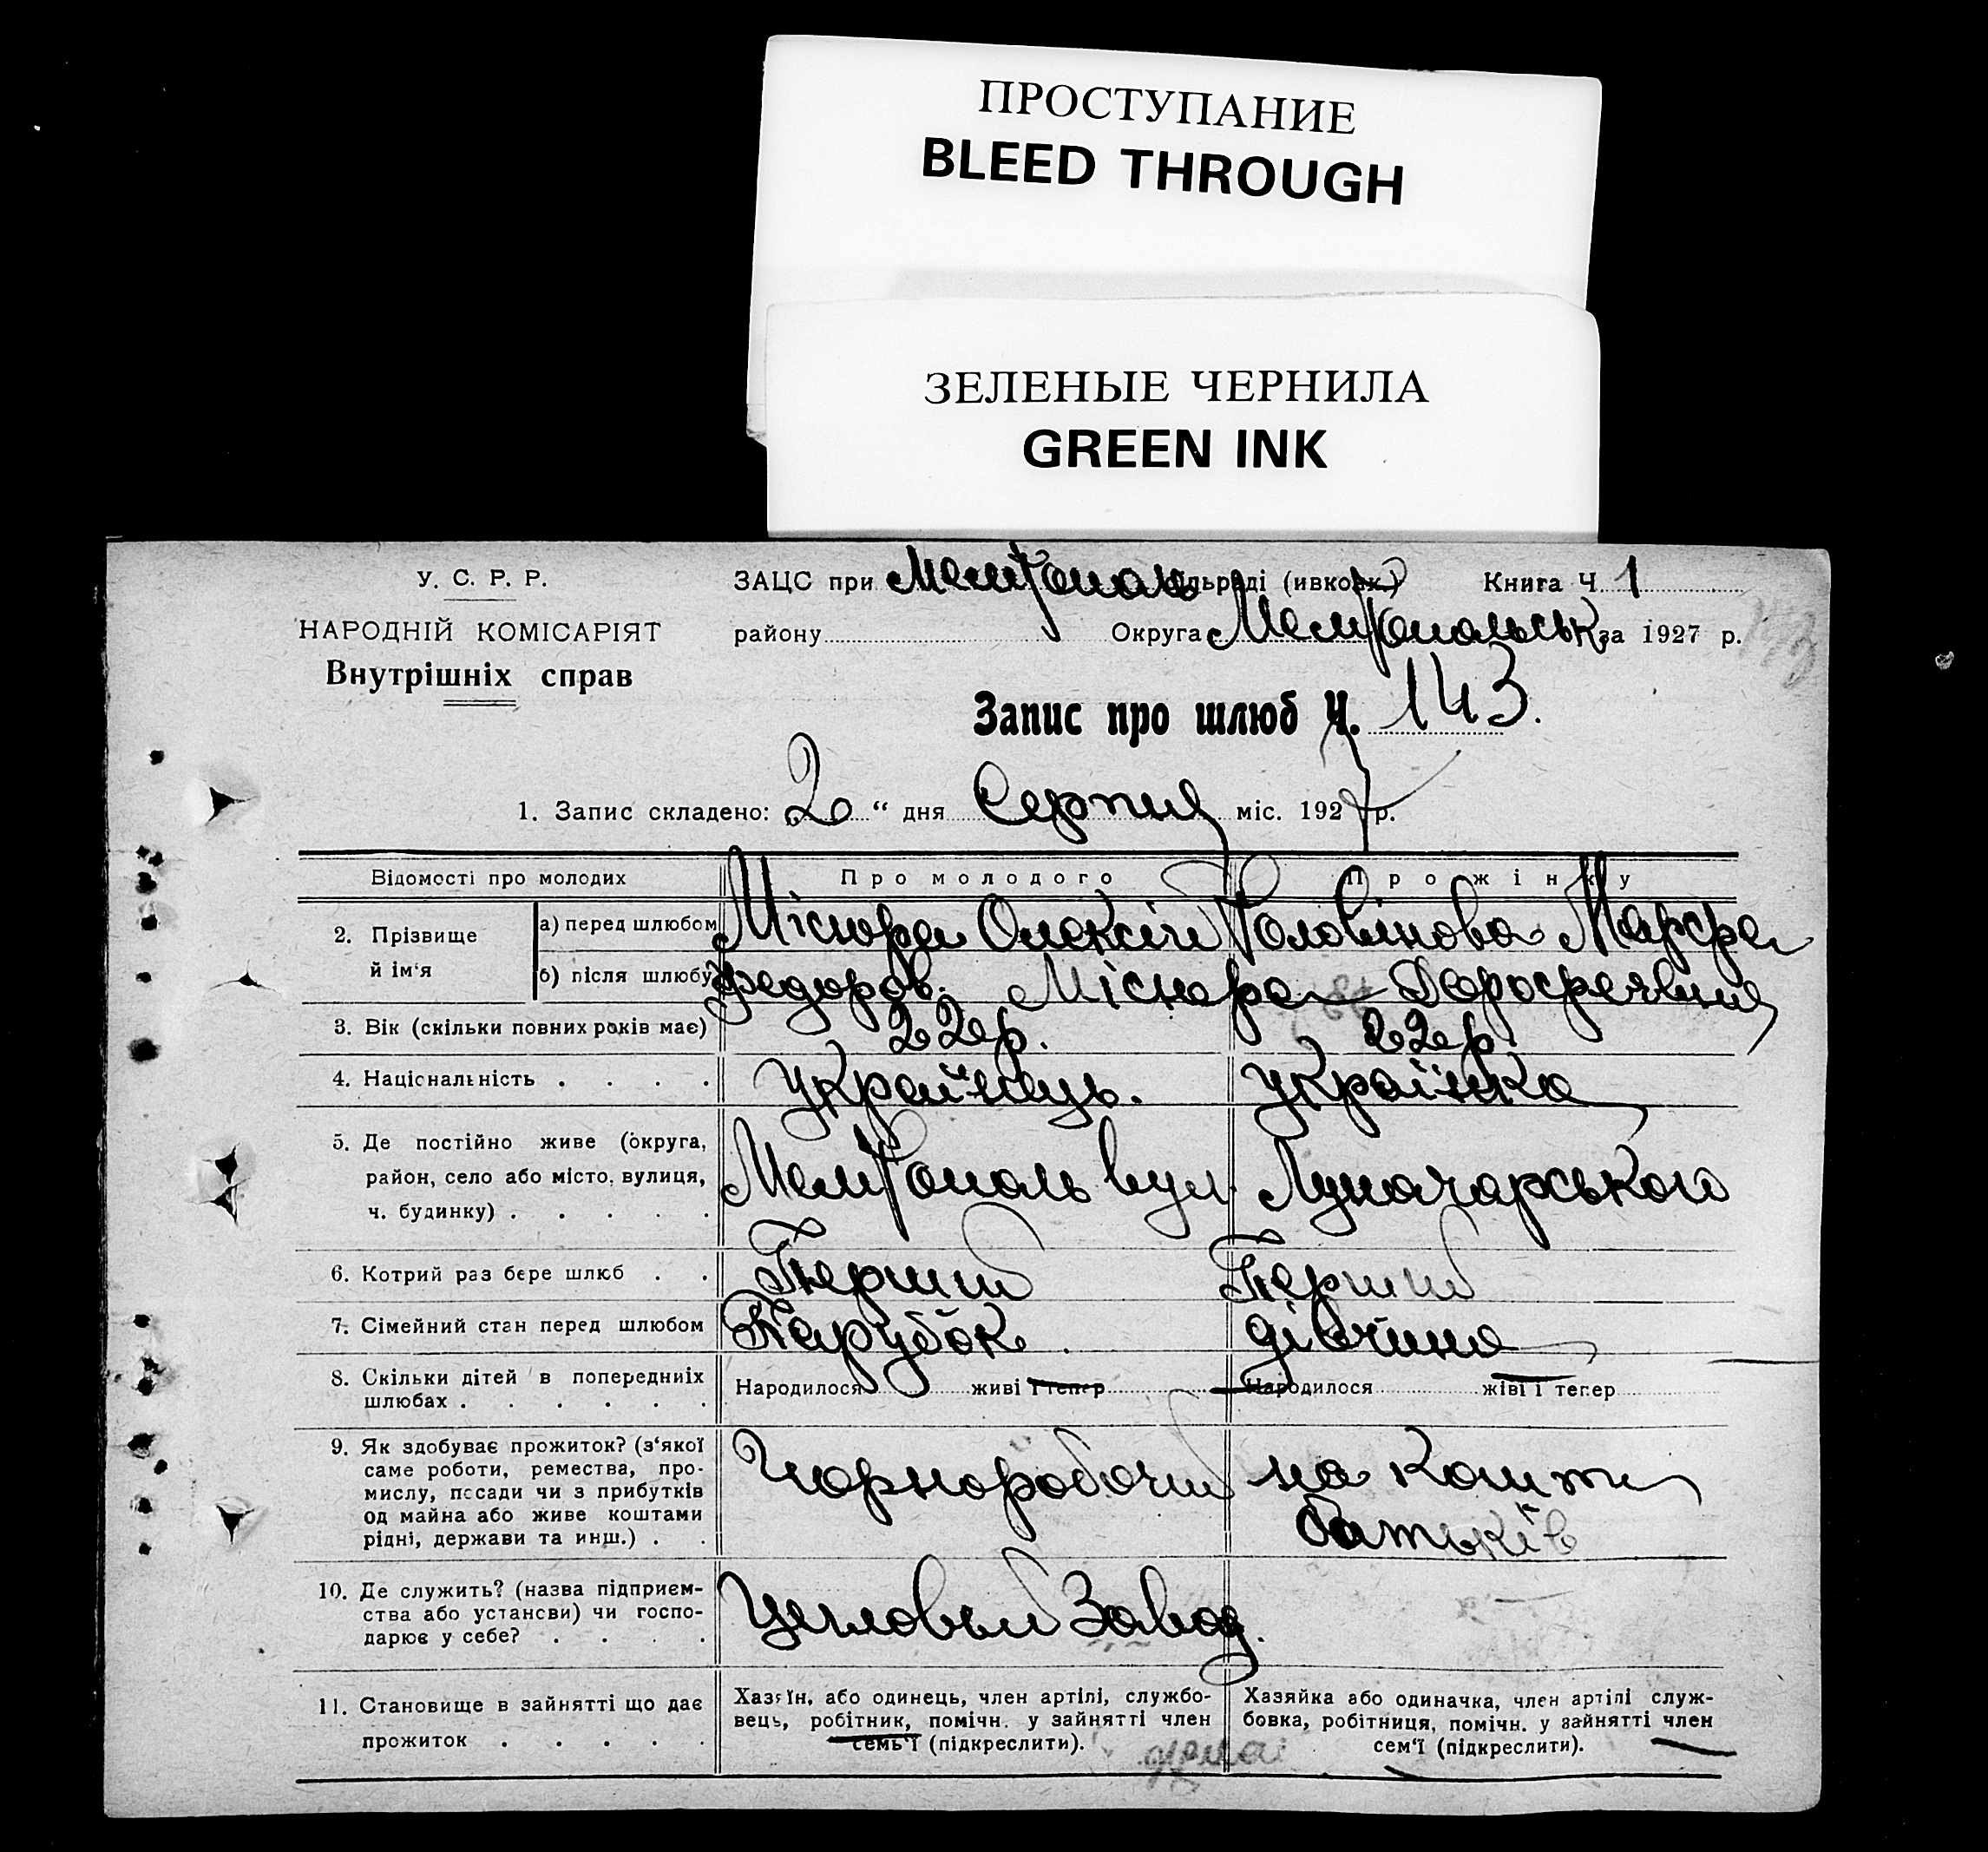 ПРОСТУПАНИЕ
BLEED THROUGH
ЗЕЛЕНЫЕ ЧЕРНИЛА
GREEN INK
У. С. Р. Р.
НАРОДНІЙ КОМІСАРІЯТ
Внутрішніх справ
ЗАЦС при Мелітополь сільраді (ивковк.) Книга Ч. 1
району Округа Мелітопольськ. за 1927 р.
143
Запис про шлюб Ч. 143.
1. Запис складено: 2 " дня Серпня міс. 1927 р.
Відомості про молодих Про молодого Про жінку
2. Прізвище й ім'я
а) перед шлюбом Місюра Олексій Головінова Марфа
б) після шлюбу Федоров. Місюра Дорофеявна
3. Вік (скільки повних років має) 22 р. 22 р.
4. Націснальність . . . . Українець. Українка
5. Де постійно живе (округа,
район, село або місто, вулиця,
ч. будинку) . . . . .
Мелітополь вул Луначарського
6. Котрий раз бере шлюб . . Перший Перший
7. Сімейний стан перед шлюбом Парубок. дівчина
8. Скільки дітей в попередніх
шлюбах . . . . . .
Народилося живі і тепер Народилося жіві і тепер
9. Як здобуває прожиток? (з'якої
саме роботи, ремества, про-
мислу, посади чи з прибутків
од майна або живе коштами
рідні, держави та инш.) . .
Чорноробочий на кошти
батьків
10. Де служить? (назва підприєм-
ства або устансви) чи госпо-
дарює у себе? . . . .
Цегловый Завод.
11. Становище в зайнятті що дає
прожиток . . . . .
Хазяїн, або одинець, член артілі, службо-
вець, робітник, помічн. у зайнятті член
семь'ї (підкреслити).
Хазяйка або одиначка, член артілі служ-
бовка, робітниця, помічн. у зайнятті член
сем'ї (підкреслити).